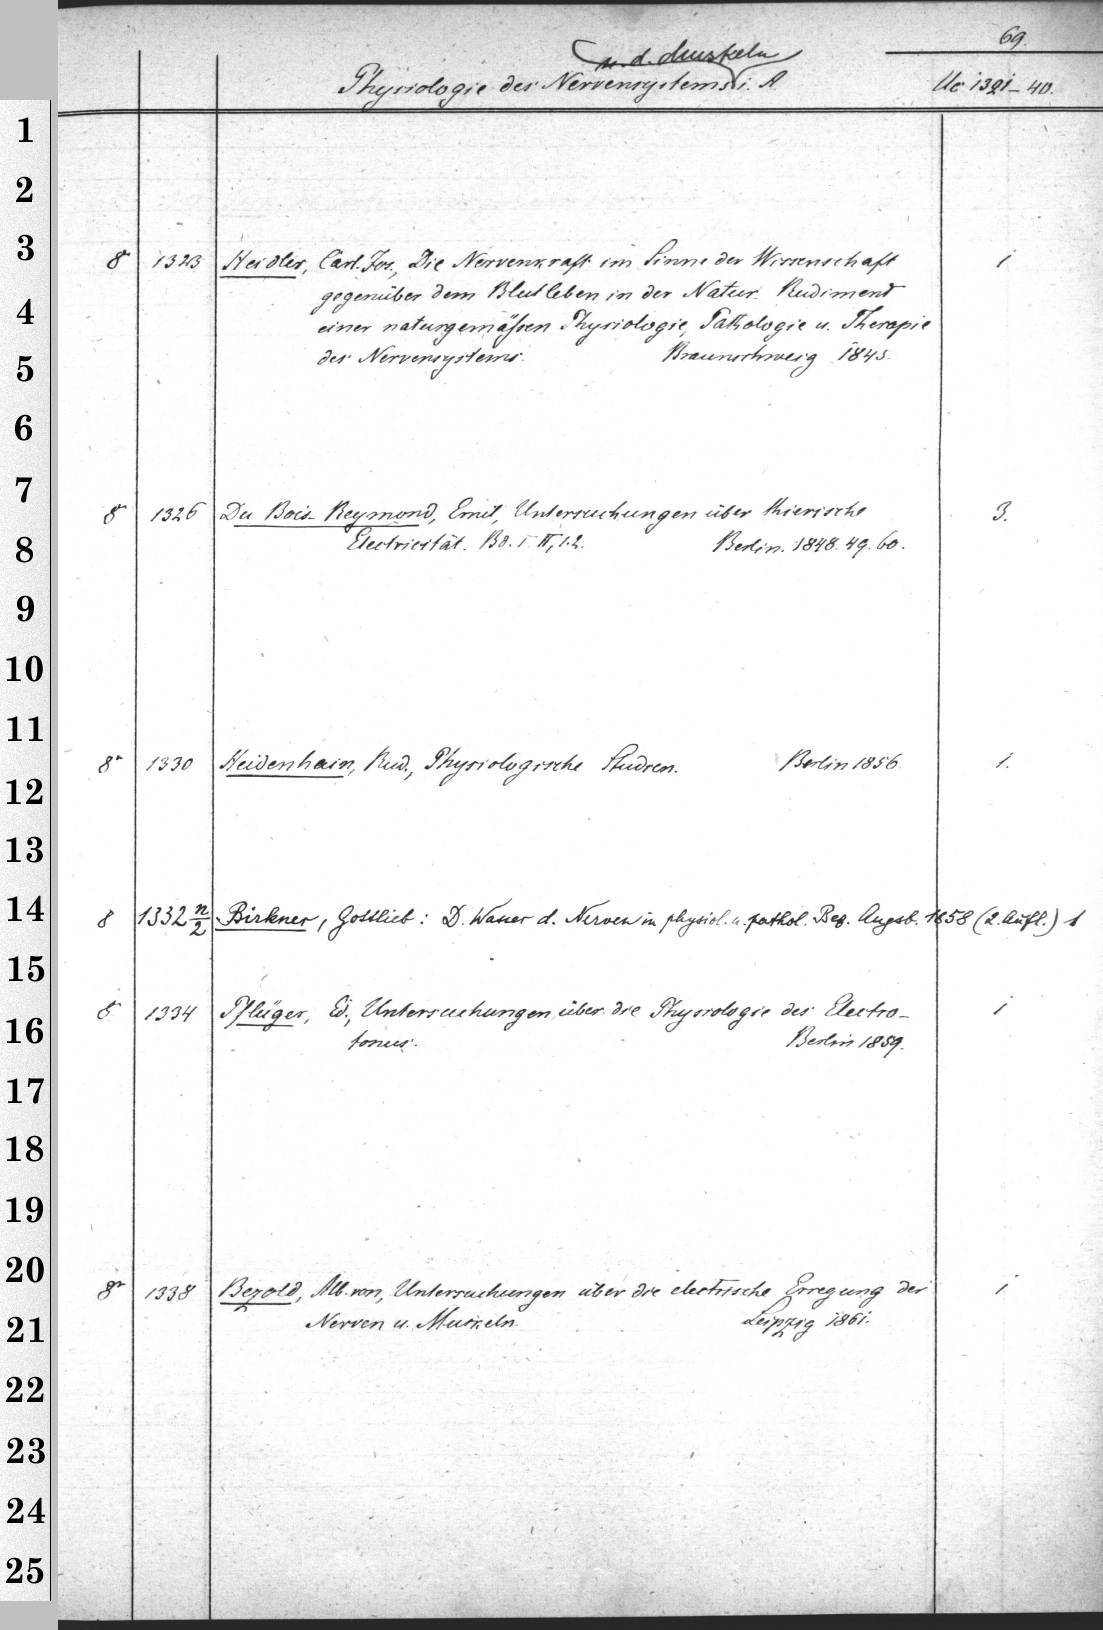 69.
u. d. Muskeln
Physiologie des Nervensystems i. A.
Uc 1321-40.
1
2
3
8° 1323 Heidler, Carl. Jos., Die Nervenkraft im Sinne der Wissenschaft 1
gegenüber dem Blutleben in der Natur. Rudiment
4
einer naturgemäßen Physiologie, Pathologie u. Therapie
5
des Nervensystems. Braunschweig 1845.
6
7
8° 1326 Du Bois-Reymond, Emil, Untersuchungen über thierische 3.
8
Electricität. Bd. I. II, 1.2. Berlin. 1848. 49. 60.
9
10
11
8° 1330 Heidenhain, Rud., Physiologische Studien. Berlin 1856. 1.
12
13
14
8 1332 n/2 Birkner, Gottlieb: D. Wasser d. Nerven in physiol. u. pathol. Bez. Augsb. 1858 (2. Aufl.) 1
15
8° 1334 Pflüger, Ed., Untersuchungen über die Physiologie des Electro- 1
16
tonus. Berlin 1859.
17
18
19
20
8° 1338 Bezold, Alb. von, Untersuchungen über die electrische Erregung der 1
21
Nerven u. Muskeln. Leipzig 1861.
22
23
24
25